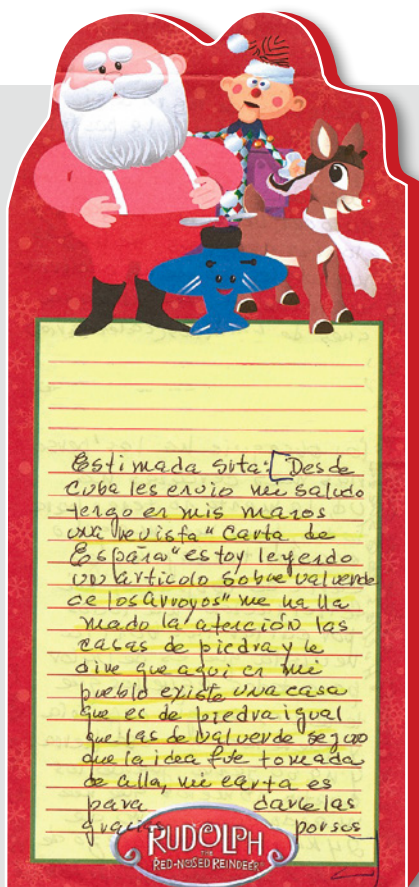 Estimada Srta: [Desde
Cuba les envio mi saludo
tengo en mis manos
una revista "Carta de
España" estoy leyendo
un articolo sobre valverde
de los arroyos" me ha lla
mado la atención las
casas de piedra y le
dire que aqui en mi
pueblo existe una casa
que es de piedra igual
que las de valverde seguro
que la idea fue tomada
de alla, mi carta es
para darle las
gracias por sus
RUDOLPH
THE
RED-NOSED REINDEER